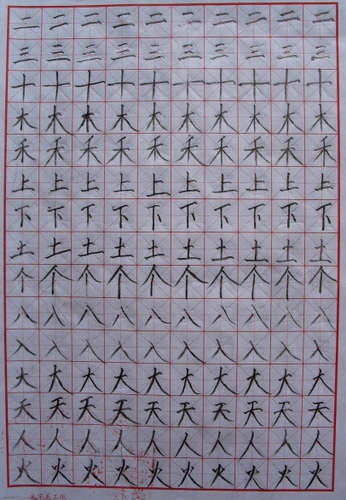 二二二二二二二二二二
三三三三三三三三三三
十十十十十十十十十十
木木木木木木木木木木
禾禾禾禾禾禾禾禾禾禾
上上上上上上上上上上
下下下下下下下下下下
土土土土土土土土土土
个个个个个个个个个个
八八八八八八八八八八
入入入入入入入入入入
大大大大大大大大大大
天天天天天天天天天天
人人人人人人人人人人
火火火火火火火火火火